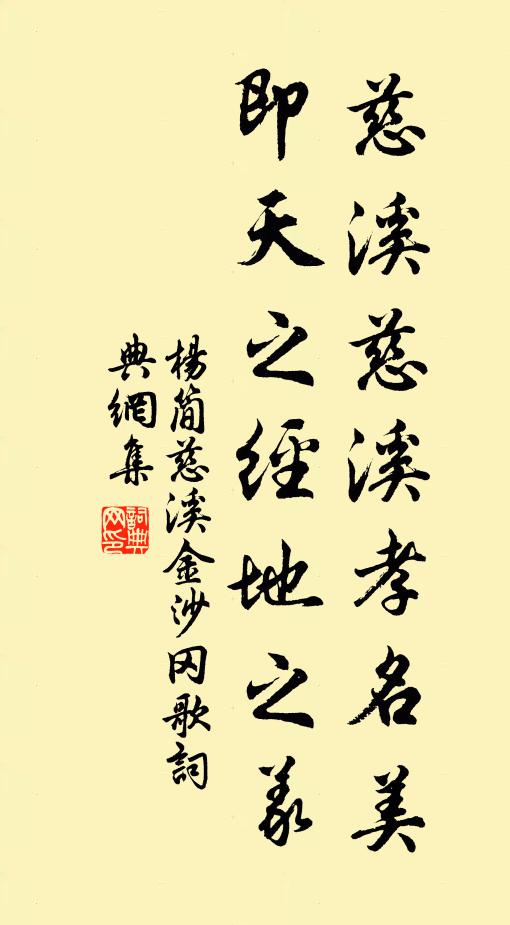 慈溪慈溪孝名美
即天之經地之義
楊簡慈溪金沙冈歌詞
典網集
詞典網印